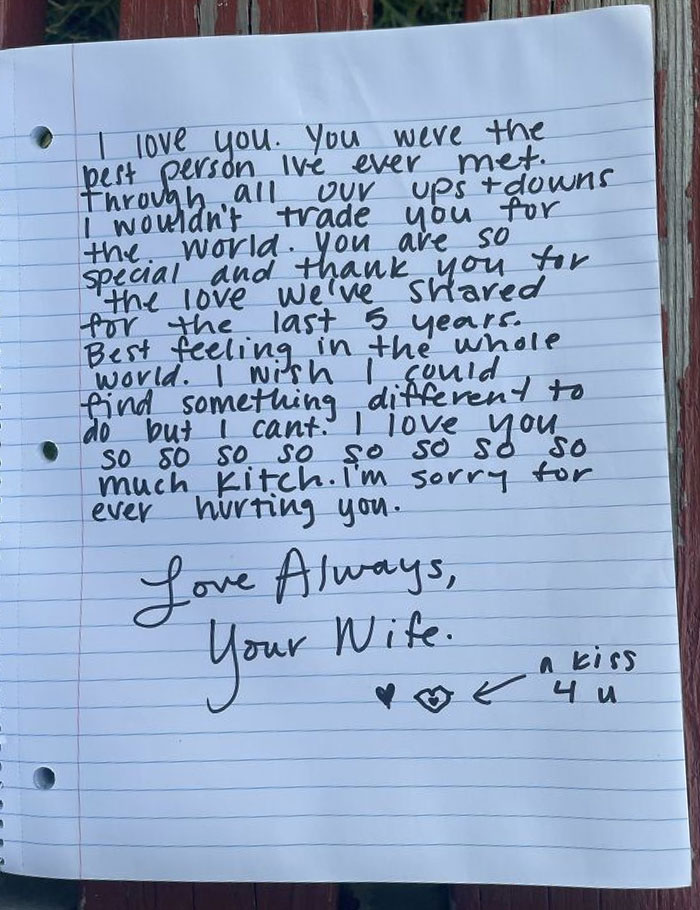 I love you. You were the
best person Ive ever met.
Through all our ups + downs
I wouldn't trade you for
the world. You are so
special and thank you for
the love we've shared
for the last 5 years.
Best feeling in the whole
world. I wish I could
find something different to
do but I cant. I love you
so so so so so so so so
much Kitch. I'm sorry for
ever hurting you.
Love Always,
Your Wife.
a kiss
4 u